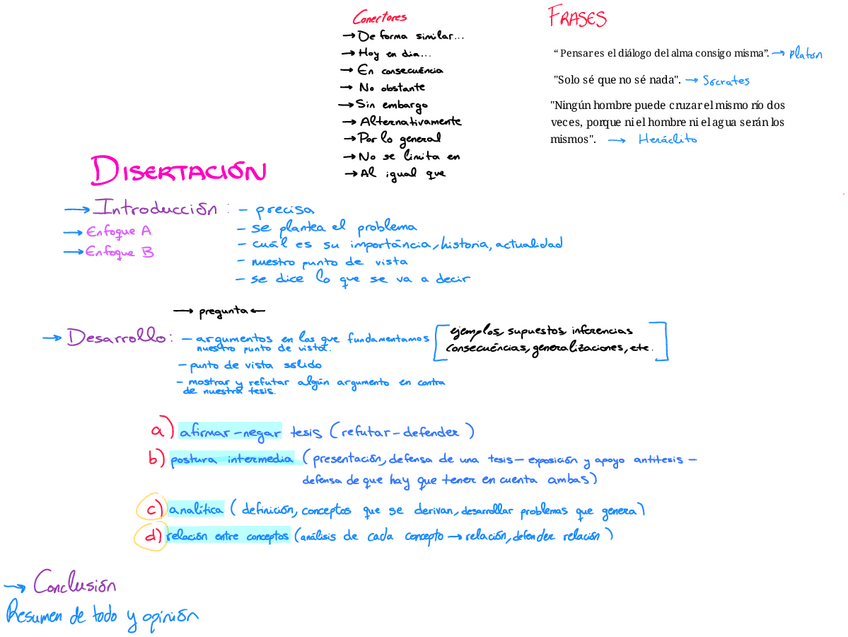 Conectores
→ De forma similar...
→ Hoy en dia...
→ En consecuencia
→ No obstante
→ Sin embargo
→ Alternativamente
→ Por lo general
→ No se limita en
→ Al igual que
FRASES
“Pensar es el diálogo del alma consigo misma”. → Platón
"Solo sé que no sé nada". → Sócrates
"Ningún hombre puede cruzar el mismo río dos
veces, porque ni el hombre ni el agua serán los
mismos". → Heráclito
DISERTACIÓN
→ Introducción : - precisa
→ Enfoque A
→ Enfoque B
- se plantea el problema
- cuál es su importáncia, historia, actualidad
- nuestro punto de vista
- se dice lo que se va a decir
→ pregunta ←
→ Desarrollo : - argumentos en los que fundamentamos
nuestro punto de vista.
[ejemplos, supuestos, inferencias
consecuéncias, generalizaciones, etc.]
- punto de vista sólido
- mostrar y refutar algún argumento en contra
de nuestra tesis.
a) afirmar-negar tesis (refutar-defender)
b) postura intermedia (presentación, defensa de una tesis - exposición y apoyo antitesis -
defensa de que hay que tener en cuenta ambas)
c) analítica (definición, conceptos que se derivan, desarrollar problemas que genera)
d) relación entre conceptos (análisis de cada concepto → relación, defender relación)
→ Conclusión
Resumen de todo y opinión